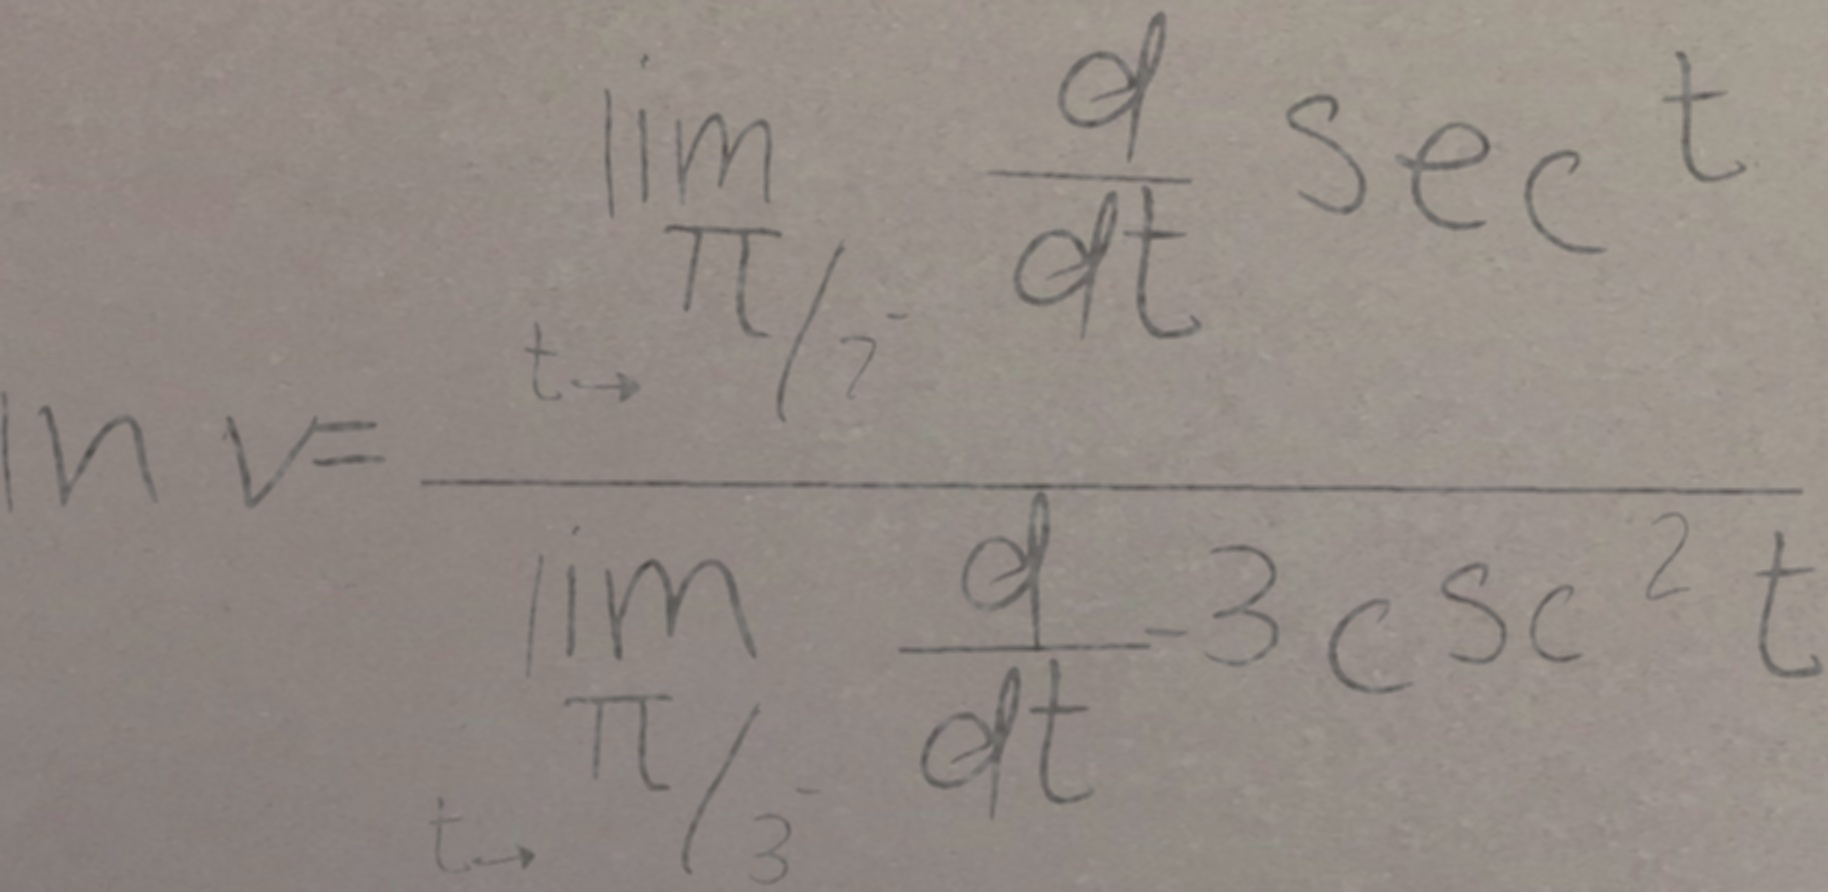 ln v = \frac{\lim_{t \to \pi/7^-} \frac{d}{dt} \sec t}{\lim_{t \to \pi/3^-} \frac{d}{dt} -3 \csc^2 t}